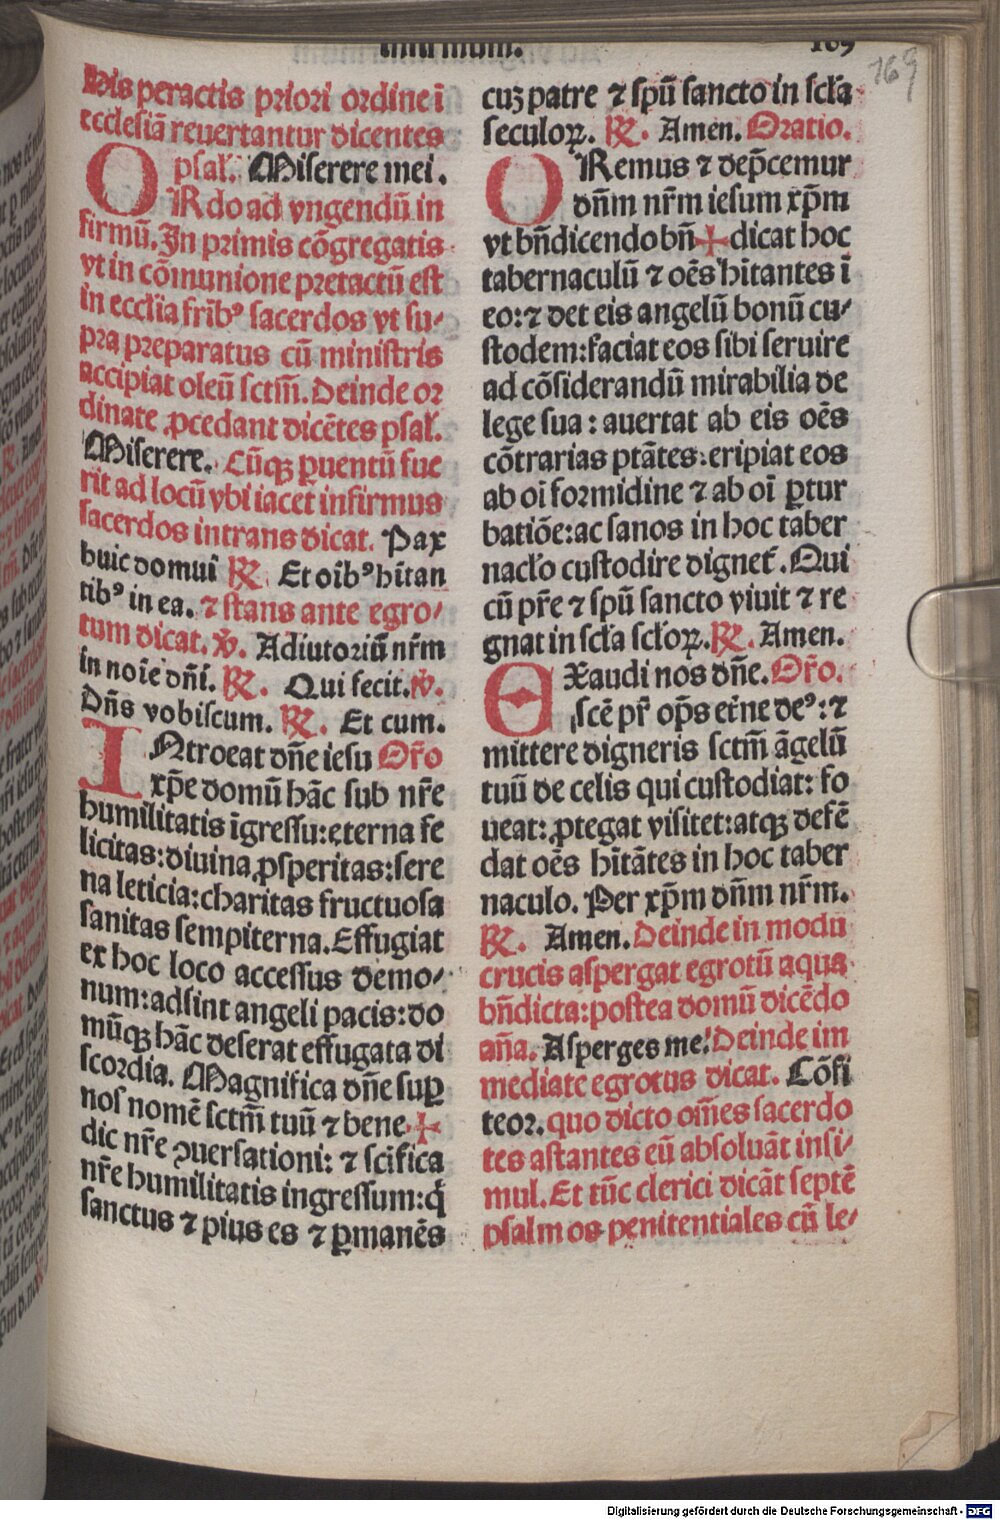 infirmum.
169
169
His peractis priori ordine ī
ecclesiā reuertantur dicentes
psal. Miserere mei.
ORdo ad vngendū in
firmū. In primis cōgregatis
vt in cōmunione pretactū est
in ecclīa frībꝰ sacerdos vt su/
pra preparatus cū ministris
accipiat oleū sctm̄. Deinde or
dinate ꝓcedant dicētes psal.
Miserere. Cūqꝫ ꝑuentū fue
rit ad locū vbi iacet infirmus
sacerdos intrans dicat. Pax
huic domui ℟. Et oībꝰ hītan
tibꝰ in ea. ⁊ stans ante egro/
tum dicat. ℣. Adiutoriū nr̄m
in noīe dn̄i. ℟. Qui fecit. ℣.
Dn̄s vobiscum. ℟. Et cum.
INtroeat dn̄e iesu Or̄o
xp̄e domū hāc sub nr̄e
humilitatis īgressu: eterna fe
licitas: diuina ꝓsperitas: sere
na leticia: charitas fructuosa
sanitas sempiterna. Effugiat
ex hoc loco accessus demo/
num: adsint angeli pacis: do
mūqꝫ hāc deserat effugata di
scordia. Magnifica dn̄e suꝑ
nos nomē sctm̄ tuū ⁊ bene ✠
dic nr̄e ꝯuersationi: ⁊ scīfica
nr̄e humilitatis ingressum: q̄
sanctus ⁊ pius es ⁊ ꝑmanēs
cuꝫ patre ⁊ spū sancto in scl̄a
seculoꝝ. ℟. Amen. Oratio.
ORemus ⁊ dep̄cemur
dn̄m nr̄m iesum xp̄m
vt bn̄dicendo bn̄✠dicat hoc
tabernaculū ⁊ oēs hītantes ī
eo: ⁊ det eis angelū bonū cu/
stodem: faciat eos sibi seruire
ad cōsiderandū mirabilia de
lege sua: auertat ab eis oēs
cōtrarias ptātes: eripiat eos
ab oī formidine ⁊ ab oī ꝑtur
batiōe: ac sanos in hoc taber
nacl̄o custodire dignet̄. Qui
cū pr̄e ⁊ spū sancto viuit ⁊ re
gnat in scl̄a scl̄oꝝ. ℟. Amen.
EXaudi nos dn̄e. Or̄o.
scē pr̄ op̄s eter̄ne deꝰ: ⁊
mittere digneris sctm̄ āgelū
tuū de celis qui custodiat: fo
ueat: ꝓtegat visitet: atqꝫ defē
dat oēs hītātes in hoc taber
naculo. Per xp̄m dn̄m nr̄m.
℟. Amen. Deinde in modū
crucis aspergat egrotū aqua
bn̄dicta: postea domū dicēdo
an̄a. Asperges me. Deinde im
mediate egrotus dicat. Cōfi
teor. quo dicto om̄es sacerdo
tes astantes eū absoluāt insi/
mul. Et tūc clerici dicāt septē
psalmos penitentiales cū le/
Digitalisierung gefördert durch die Deutsche Forschungsgemeinschaft - DFG